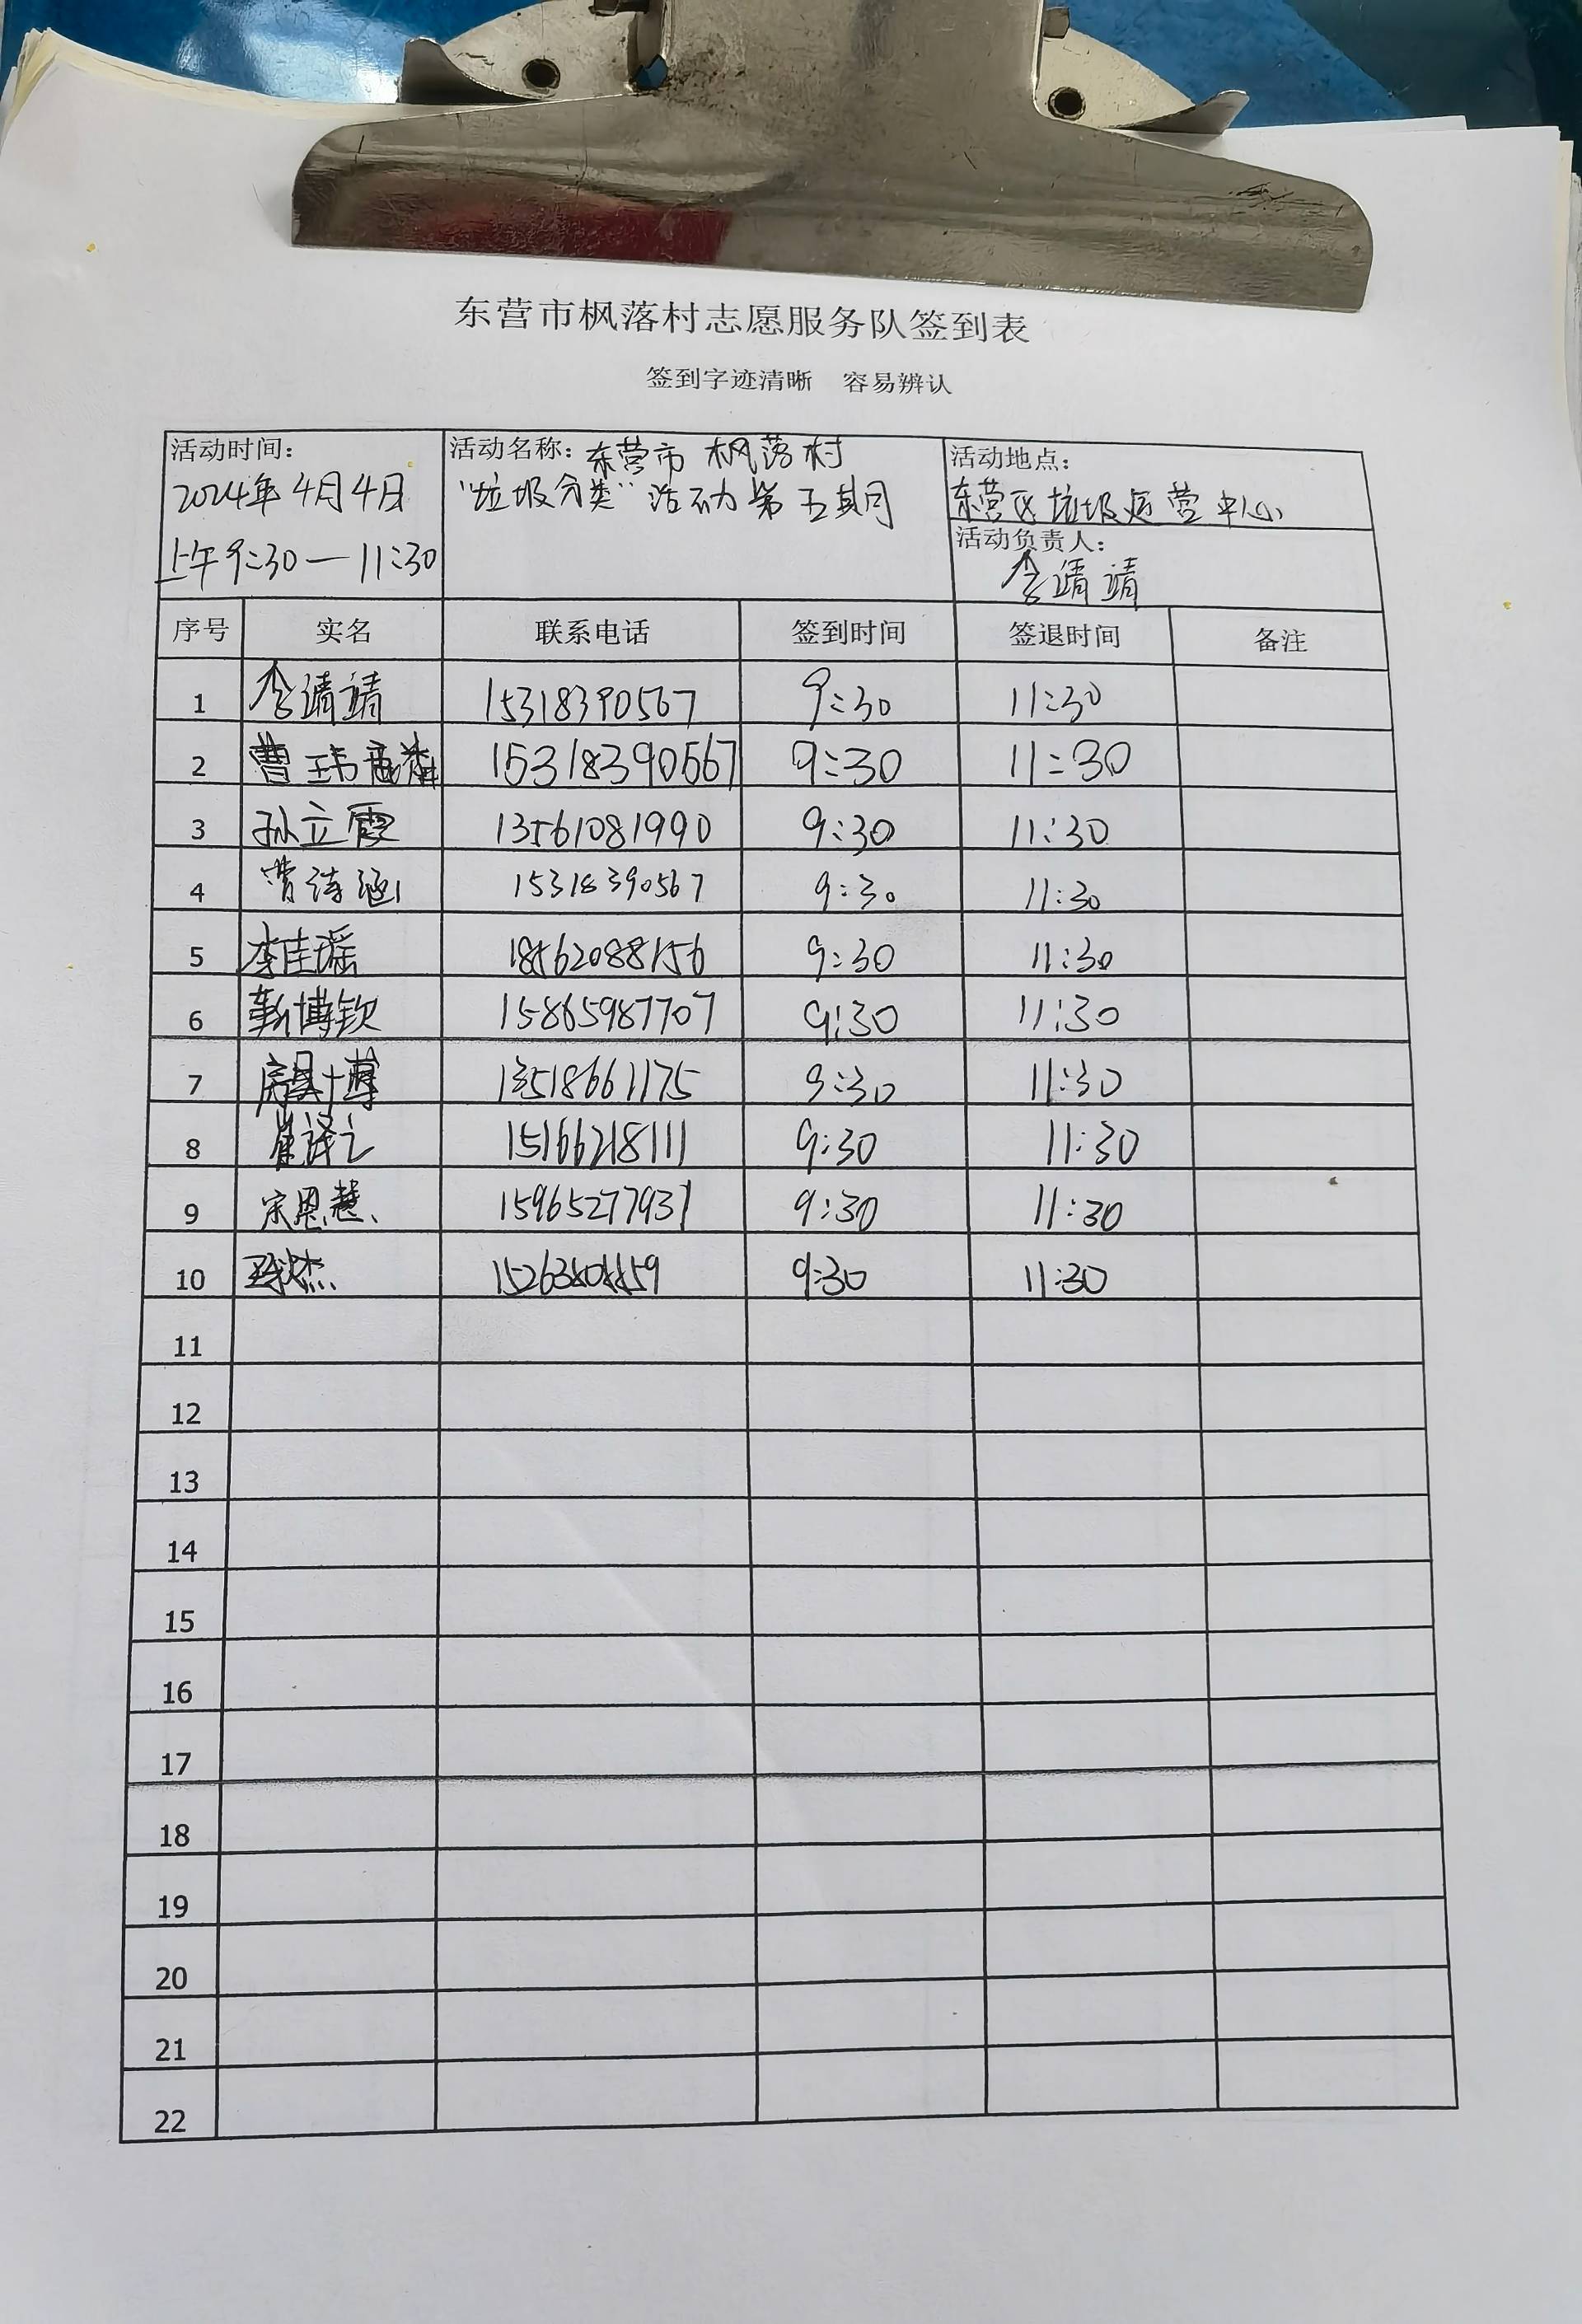 东营市枫落村志愿服务队签到表
签到字迹清晰 容易辨认
活动时间：
2024年4月4日
上午9:30—11:30
活动名称：东营市枫落村
“垃圾分类”活动第五期
活动地点：
东营区垃圾运营中心
活动负责人：
李靖靖
序号 实名 联系电话 签到时间 签退时间 备注
1 李靖靖 15318390567 9:30 11:30
2 曹玮 15318390567 9:30 11:30
3 孙立霞 13561081990 9:30 11:30
4 曹涵 15318390567 9:30 11:30
5 李佳瑶 18562088156 9:30 11:30
6 靳博钦 15865987707 9:30 11:30
7 13518661175 9:30 11:30
8 崔译之 15166218111 9:30 11:30
9 宋恩慧 15965277937 9:30 11:30
10 9:30 11:30
11
12
13
14
15
16
17
18
19
20
21
22